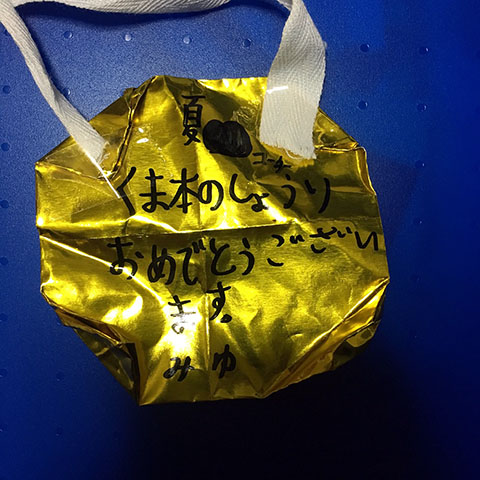 夏
コーチ
くま本のしょうり
おめでとうございい
ます。
みゆ